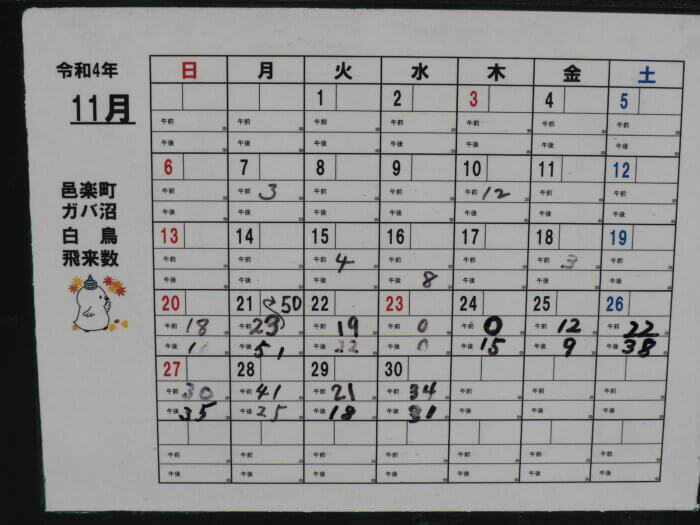 令和4年
11月
邑楽町
ガバ沼
白鳥
飛来数
日 月 火 水 木 金 土
1 2 3 4 5
午前 午前 午前 午前 午前 午前 午前
午後 午後 午後 午後 午後 午後 午後
6 7 8 9 10 11 12
午前 午前 3 午前 午前 午前 12 午前 午前
午後 午後 午後 午後 午後 午後 午後
13 14 15 16 17 18 19
午前 午前 午前 4 午前 午前 午前 3 午前
午後 午後 午後 午後 8 午後 午後 午後
20 21 50 22 23 24 25 26
午前 18 午前 23 午前 19 午前 0 午前 0 午前 12 午前 22
午後 午後 51 午後 22 午後 0 午後 15 午後 9 午後 38
27 28 29 30
午前 30 午前 41 午前 21 午前 34 午前 午前 午前
午後 35 午後 25 午後 18 午後 31 午後 午後 午後
午前 午前 午前 午前 午前 午前 午前
午後 午後 午後 午後 午後 午後 午後